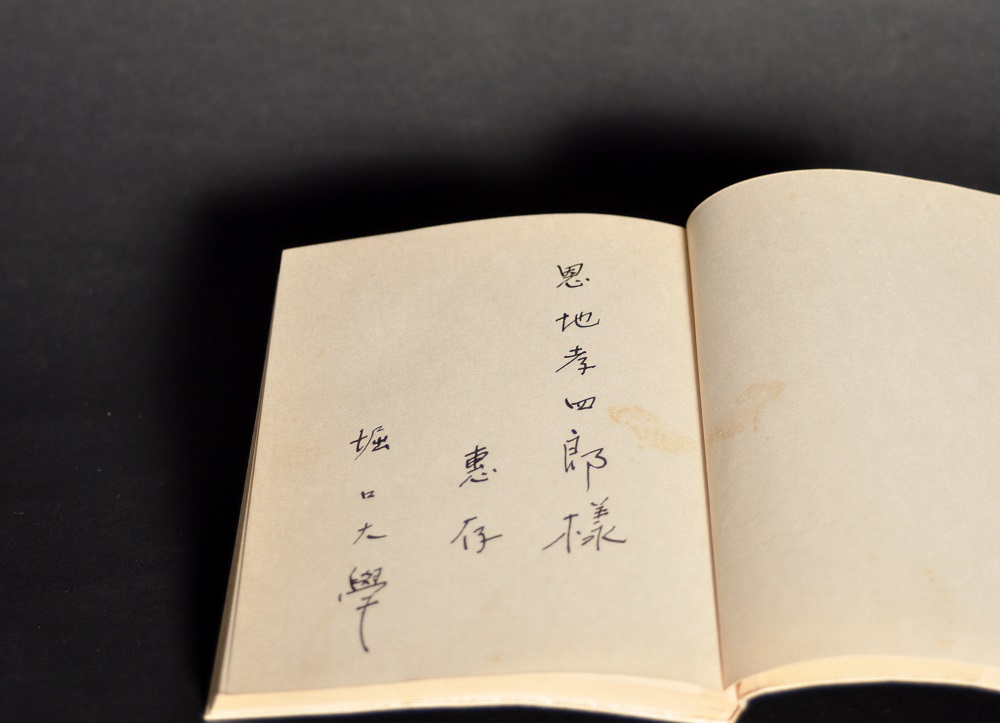 恩地孝四郎様
惠存
堀口大學